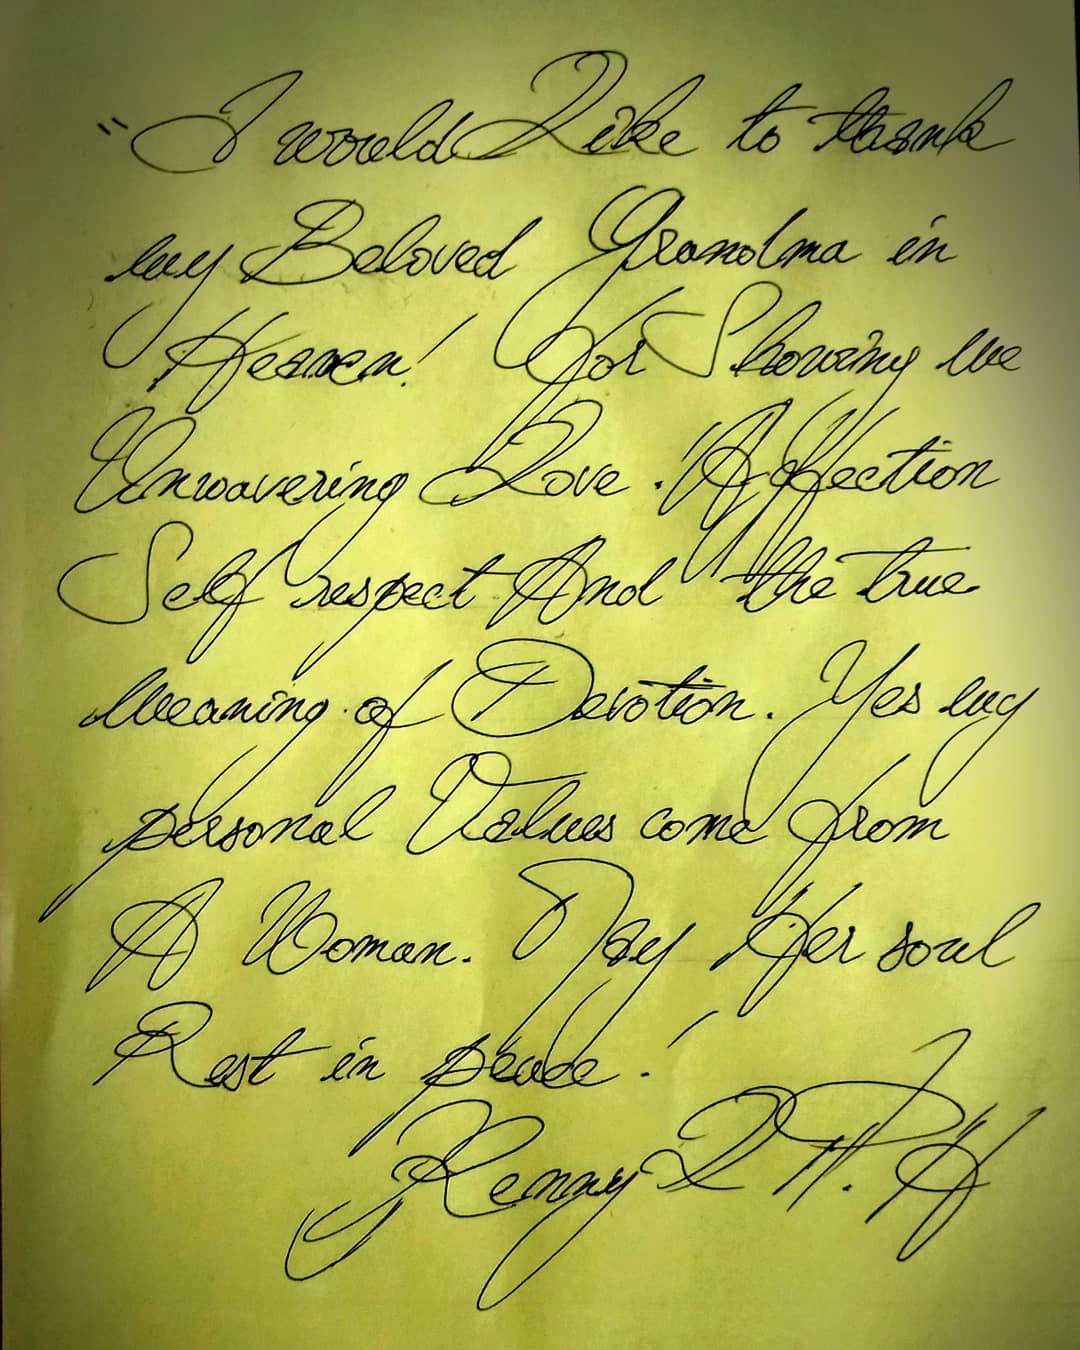 "I would Like to thank
my Beloved Grandma in
Heaven! For Showing me
Unwavering Love. Affection
Self respect And the true
Meaning of Devotion. Yes my
personal Values come from
A Woman. May Her soul
Rest in peace!
Kenny